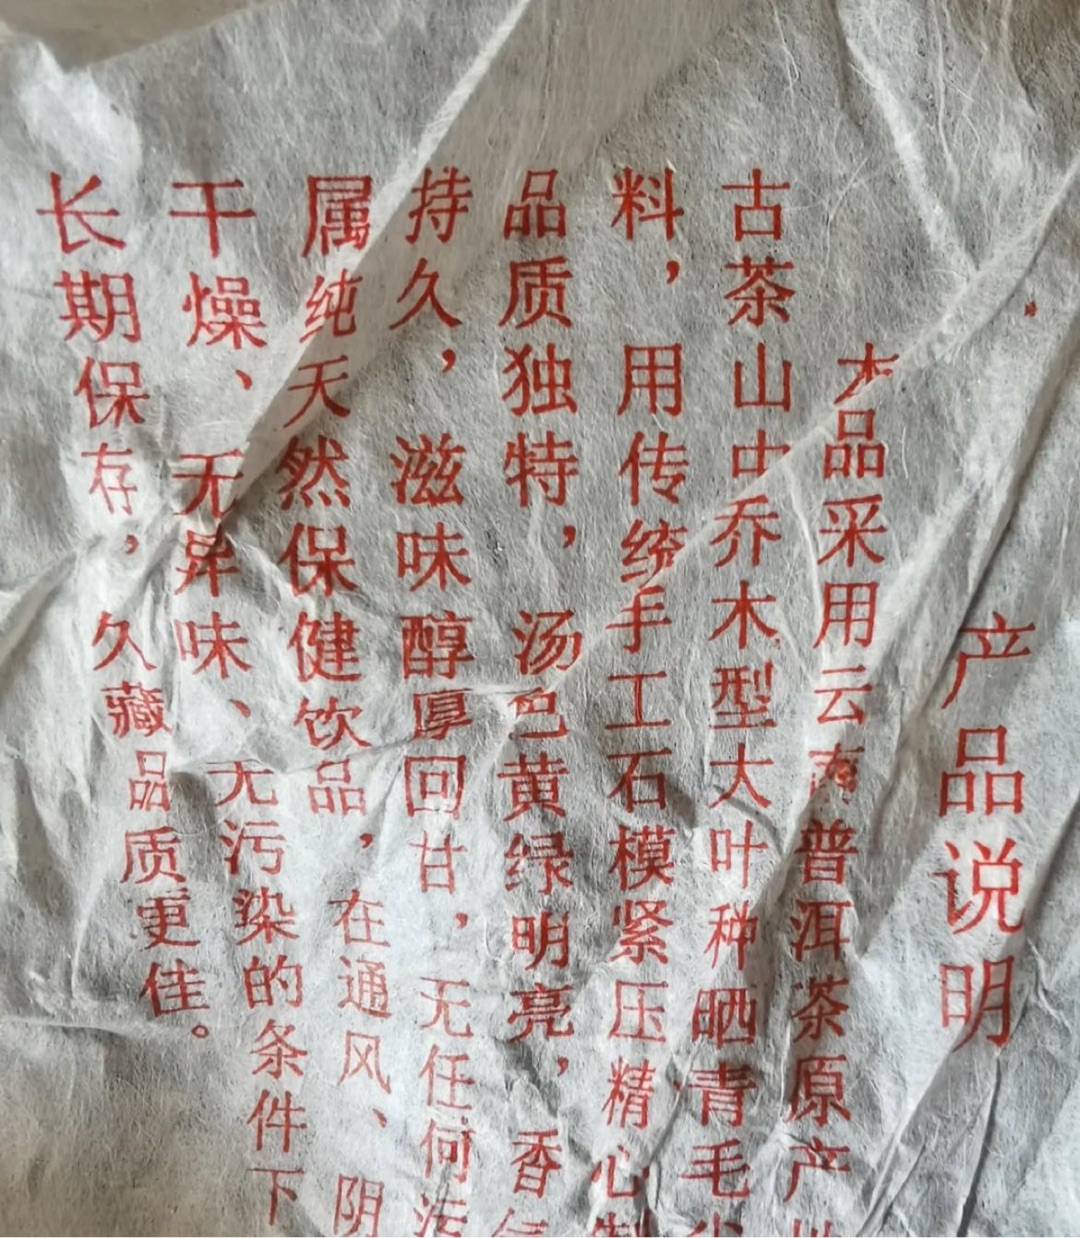 产品说明
本品采用云南普洱茶原产地
古茶山中乔木型大叶种晒青毛
料，用传统手工石模紧压精心制
品质独特，汤色黄绿明亮，香气
持久，滋味醇厚回甘，无任何污
属纯天然保健饮品，在通风、阴
干燥、无异味、无污染的条件下
长期保存，久藏品质更佳。